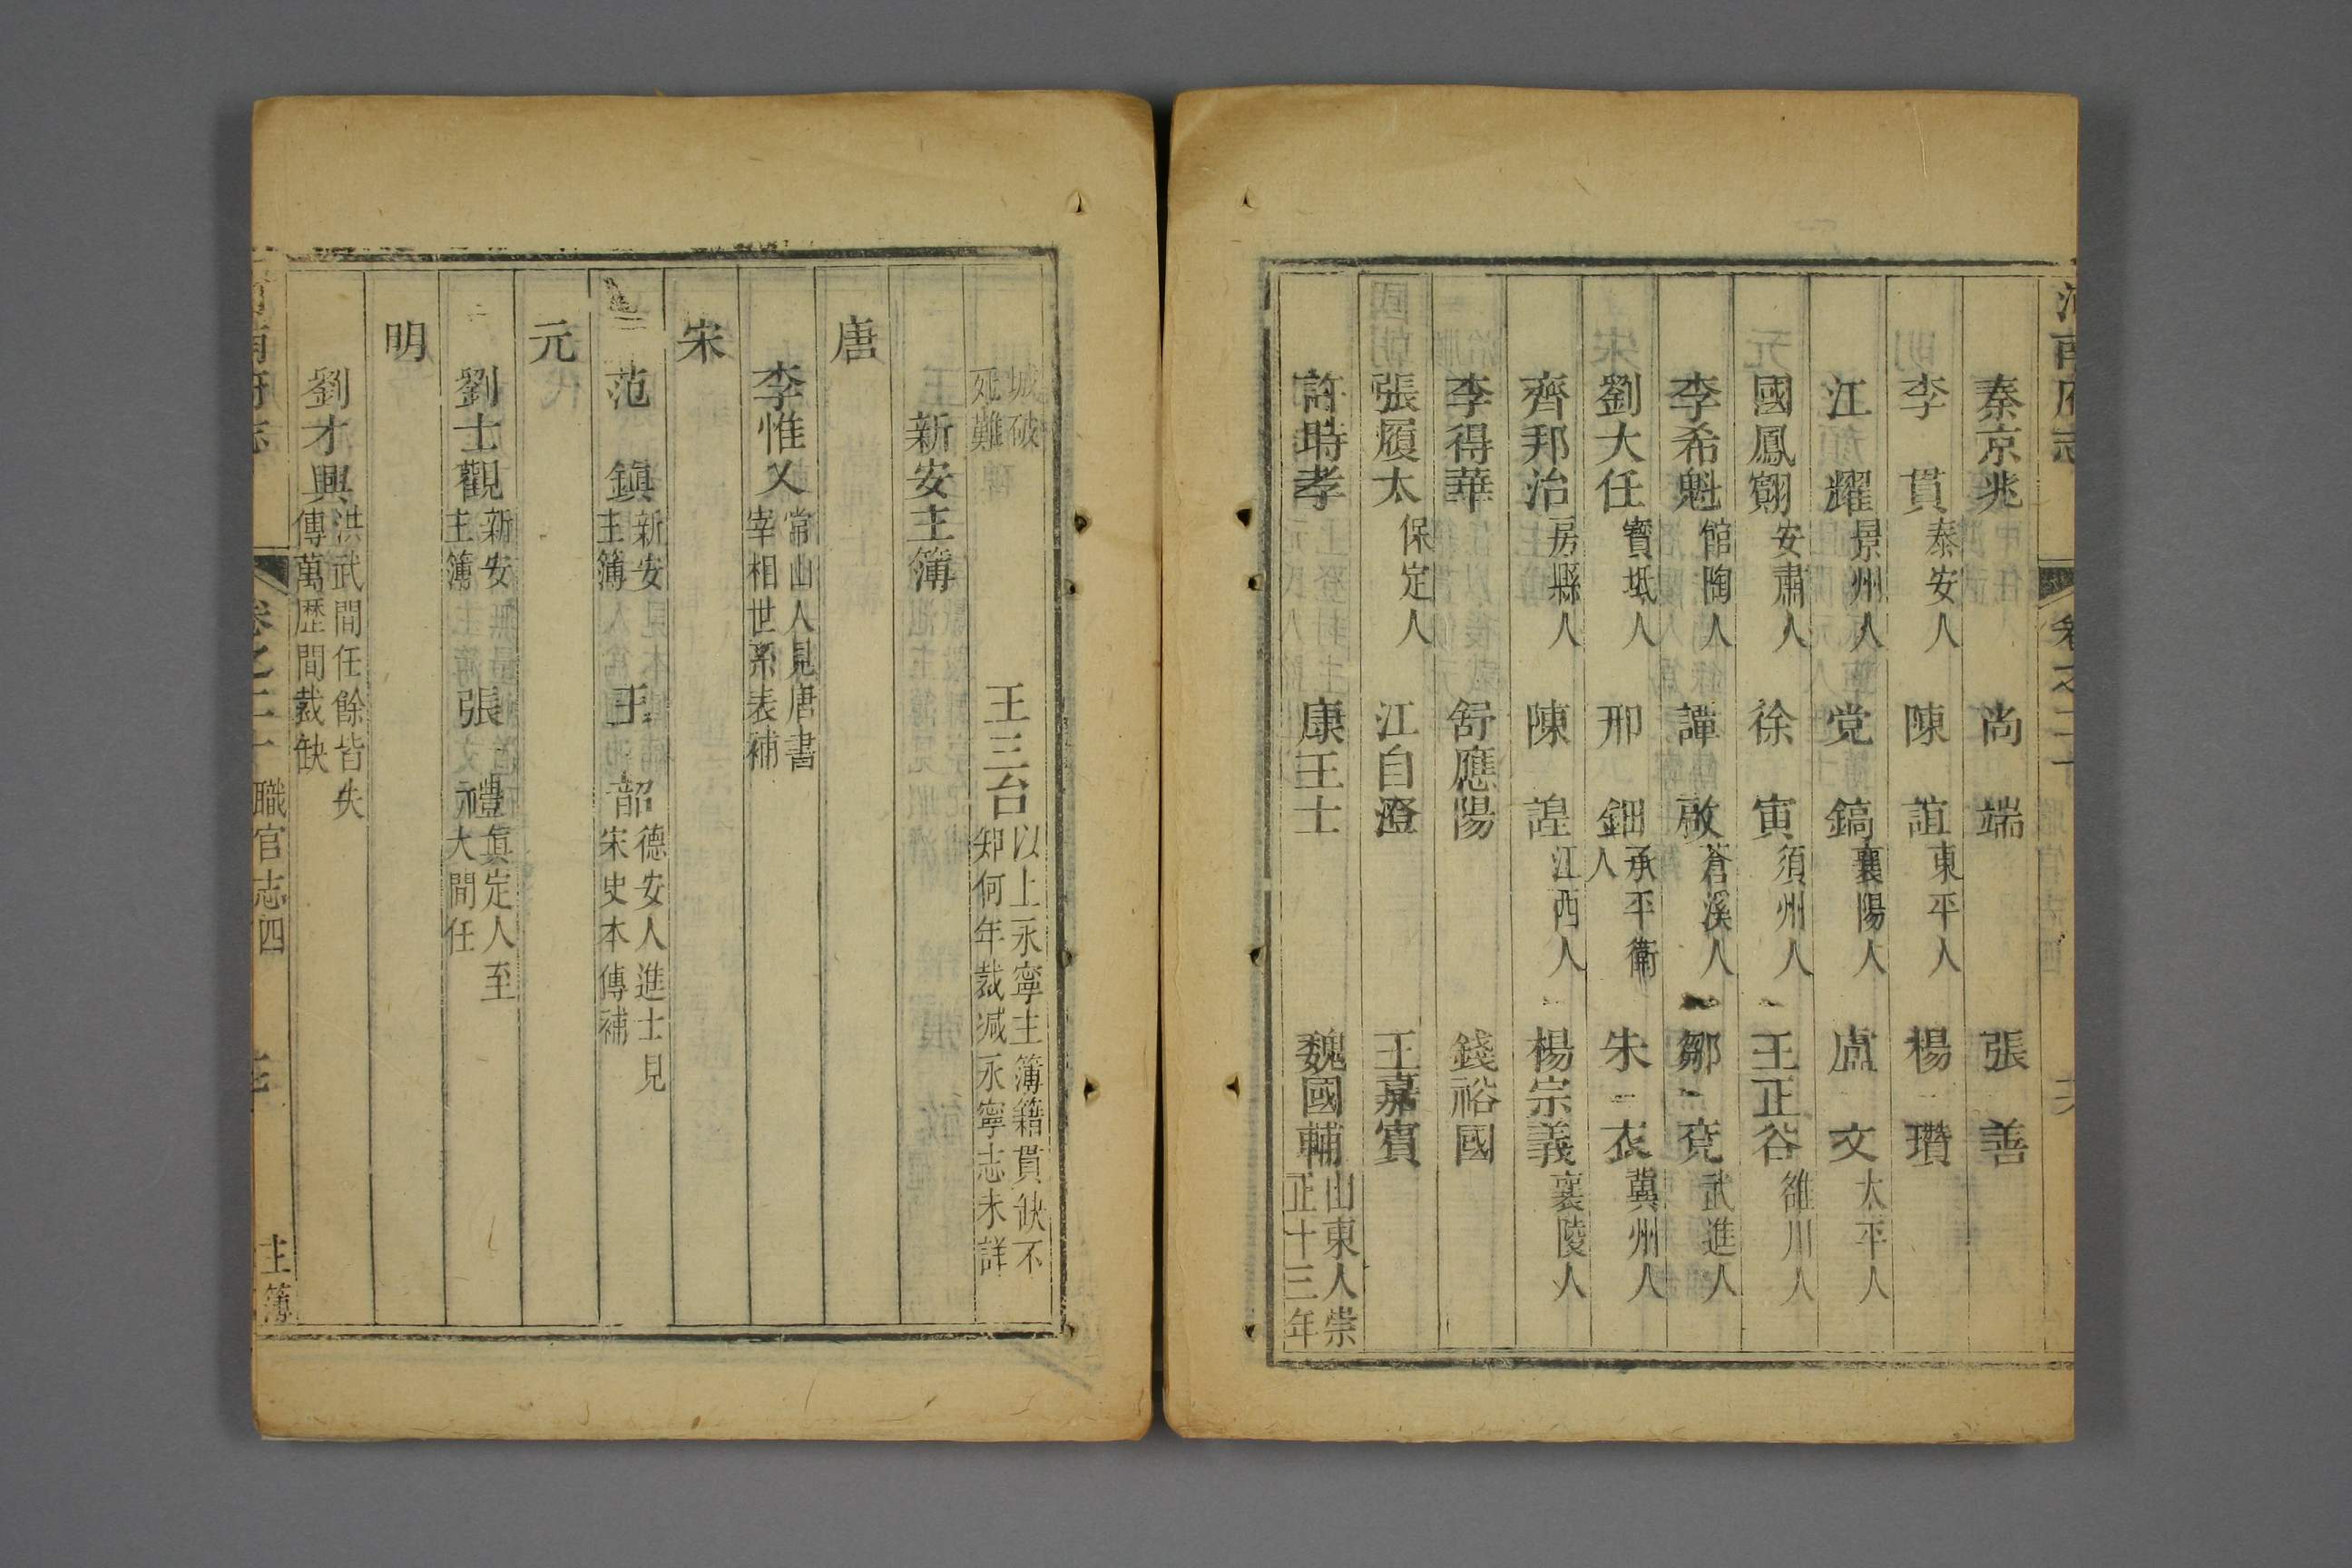 河南府志
卷之二十
秦京兆 尚端 張善
李貫 泰安人 陳誼 東平人 楊瓚
江耀 景州人 党鎬 襄陽人 盧文 太平人
國鳳翺 安肅人 徐寅 須州人 王正谷 雒川人
李希魁 館陶人 譚啟 蒼溪人 鄒堯 武進人
劉大任 寶坻人 邢鈿 承平衛人 朱衣 冀州人
齊邦治 房縣人 陳諻 江西人 楊宗義 襄陵人
李得華 舒應陽 錢裕國
張履太 保定人 江自澄 王嘉賓
許時孝 康王士 魏國輔 山東人崇正十三年
城破死難 王三台 以上永寧主簿籍貫缺不知何年裁減永寧志未詳
新安主簿
唐
李惟乂 常山人見唐書宰相世系表補
宋
范鎮 新安主簿 王韶 德安人進士見宋史本傳補
元
劉士觀 新安主簿 張禮 眞定人至大間任
明
劉才興 洪武間任餘皆失傳萬歷間裁缺
河南府志 卷之二十 職官志四 主簿